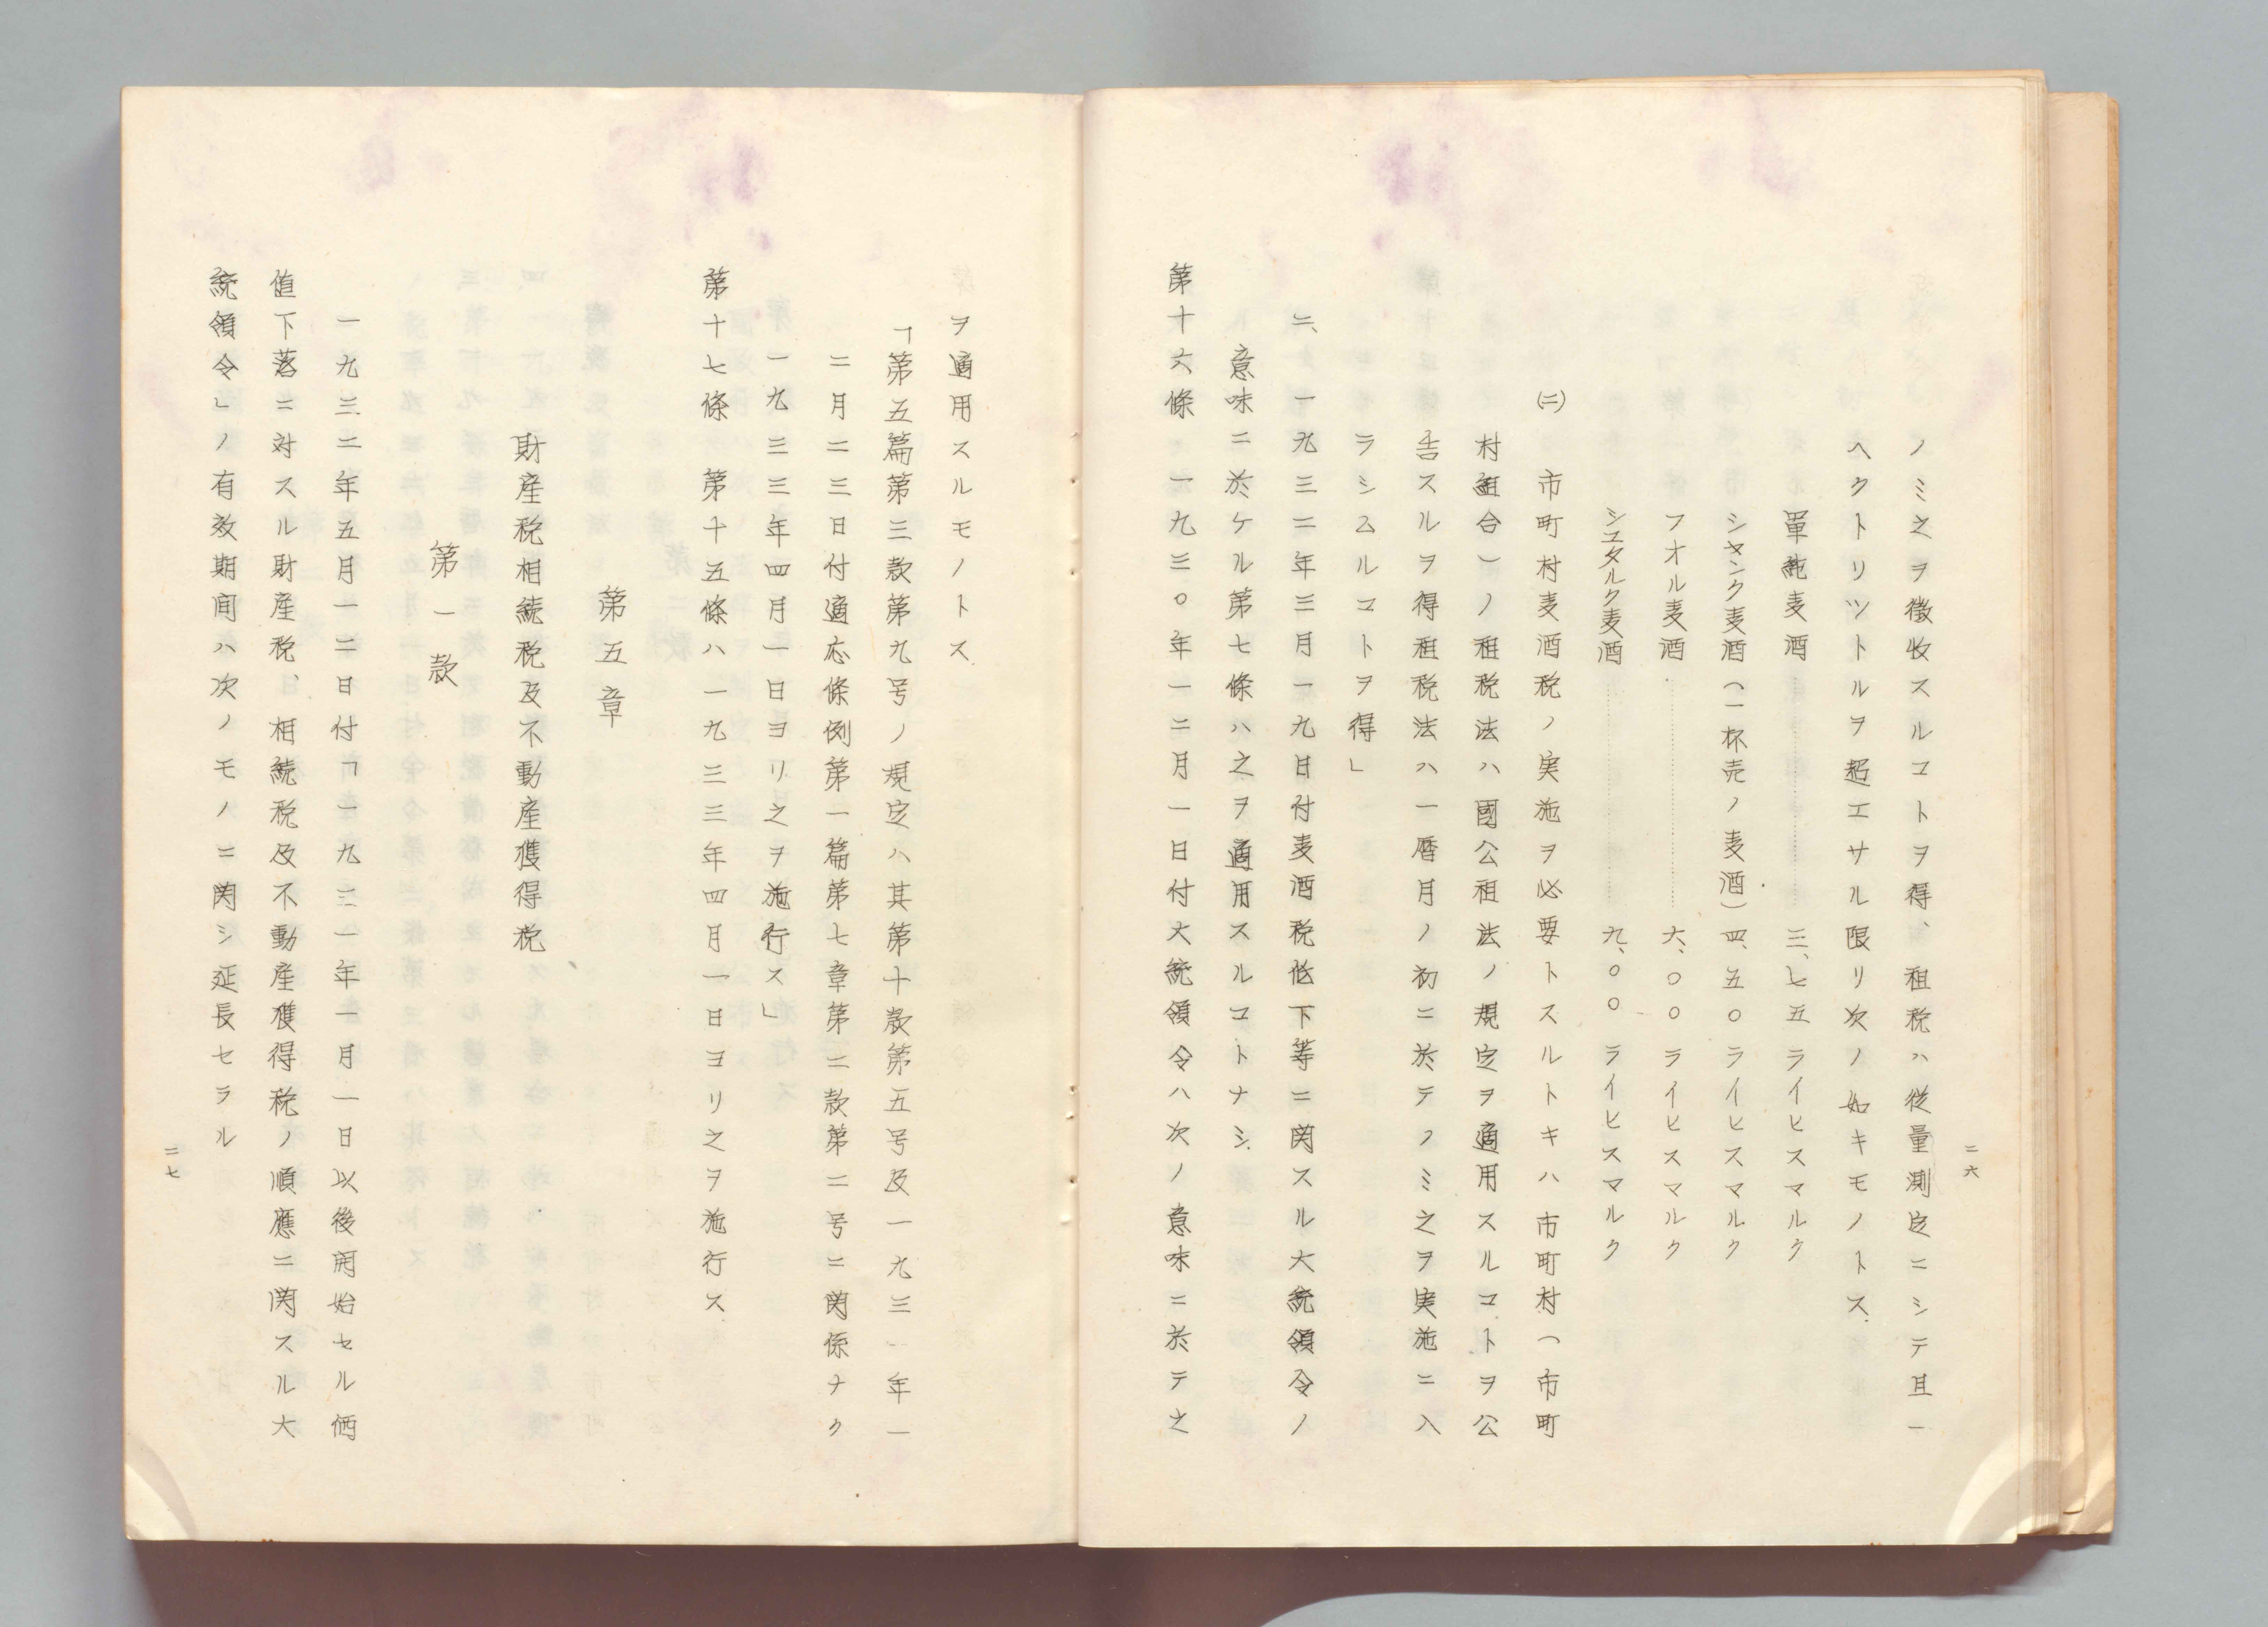 二六
ノミ之ヲ徴收スルコトヲ得、租税ハ従量測定ニシテ且一
ヘクトリツトルヲ超エサル限リ次ノ如キモノトス
單純麦酒………三、七五ライヒスマルク
シヤンク麦酒（一杯売ノ麦酒）四、五〇ライヒスマルク
フオル麦酒………六、〇〇ライヒスマルク
シユタルク麦酒………九、〇〇ライヒスマルク
(ニ) 市町村麦酒税ノ実施ヲ必要トスルトキハ市町村（市町
村組合）ノ租税法ハ國公租法ノ規定ヲ適用スルコトヲ公
告スルヲ得租税法ハ一暦月ノ初ニ於テノミ之ヲ実施ニ入
ラシムルコトヲ得」
二、一九三二年三月一九日付麦酒税低下等ニ関スル大統領令ノ
意味ニ於ケル第七條ハ之ヲ適用スルコトナシ
第十六條 一九三〇年一二月一日付大統領令ハ次ノ意味ニ於テ之
ヲ適用スルモノトス
「第五篇第三款第九号ノ規定ハ其第十款第五号及一九三一年一
二月二三日付適応條例第一篇第七章第二款第二号ニ関係ナク
一九三三年四月一日ヨリ之ヲ施行ス」
第十七條 第十五條ハ一九三三年四月一日ヨリ之ヲ施行ス
第五章
財産税相続税及不動産獲得税
第一款
一九三二年五月一二日付「一九三一年一月一日以後開始セル価
値下落ニ対スル財産税、相続税及不動産獲得税ノ順應ニ関スル大
統領令」ノ有效期间ハ次ノモノニ関シ延長セラル
二七